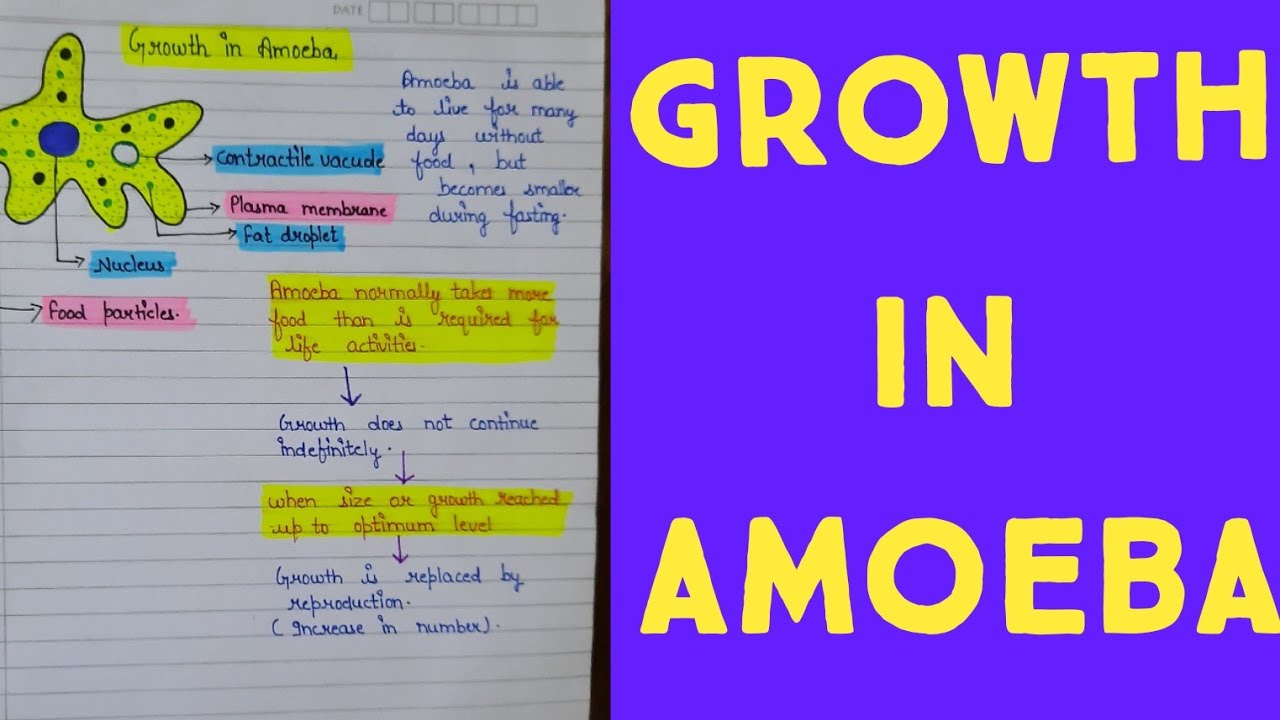 DATE
Growth in Amoeba
Amoeba is able
to live for many
days without
food, but
becomes smaller
during fasting.
Contractile vacuole
Plasma membrane
Fat droplet
Nucleus
Food particles.
Amoeba normally takes more
food than is required for
life activities.
Growth does not continue
indefinitely.
when size or growth reached
up to optimum level
Growth is replaced by
reproduction.
( Increase in number).
GROWTH
IN
AMOEBA